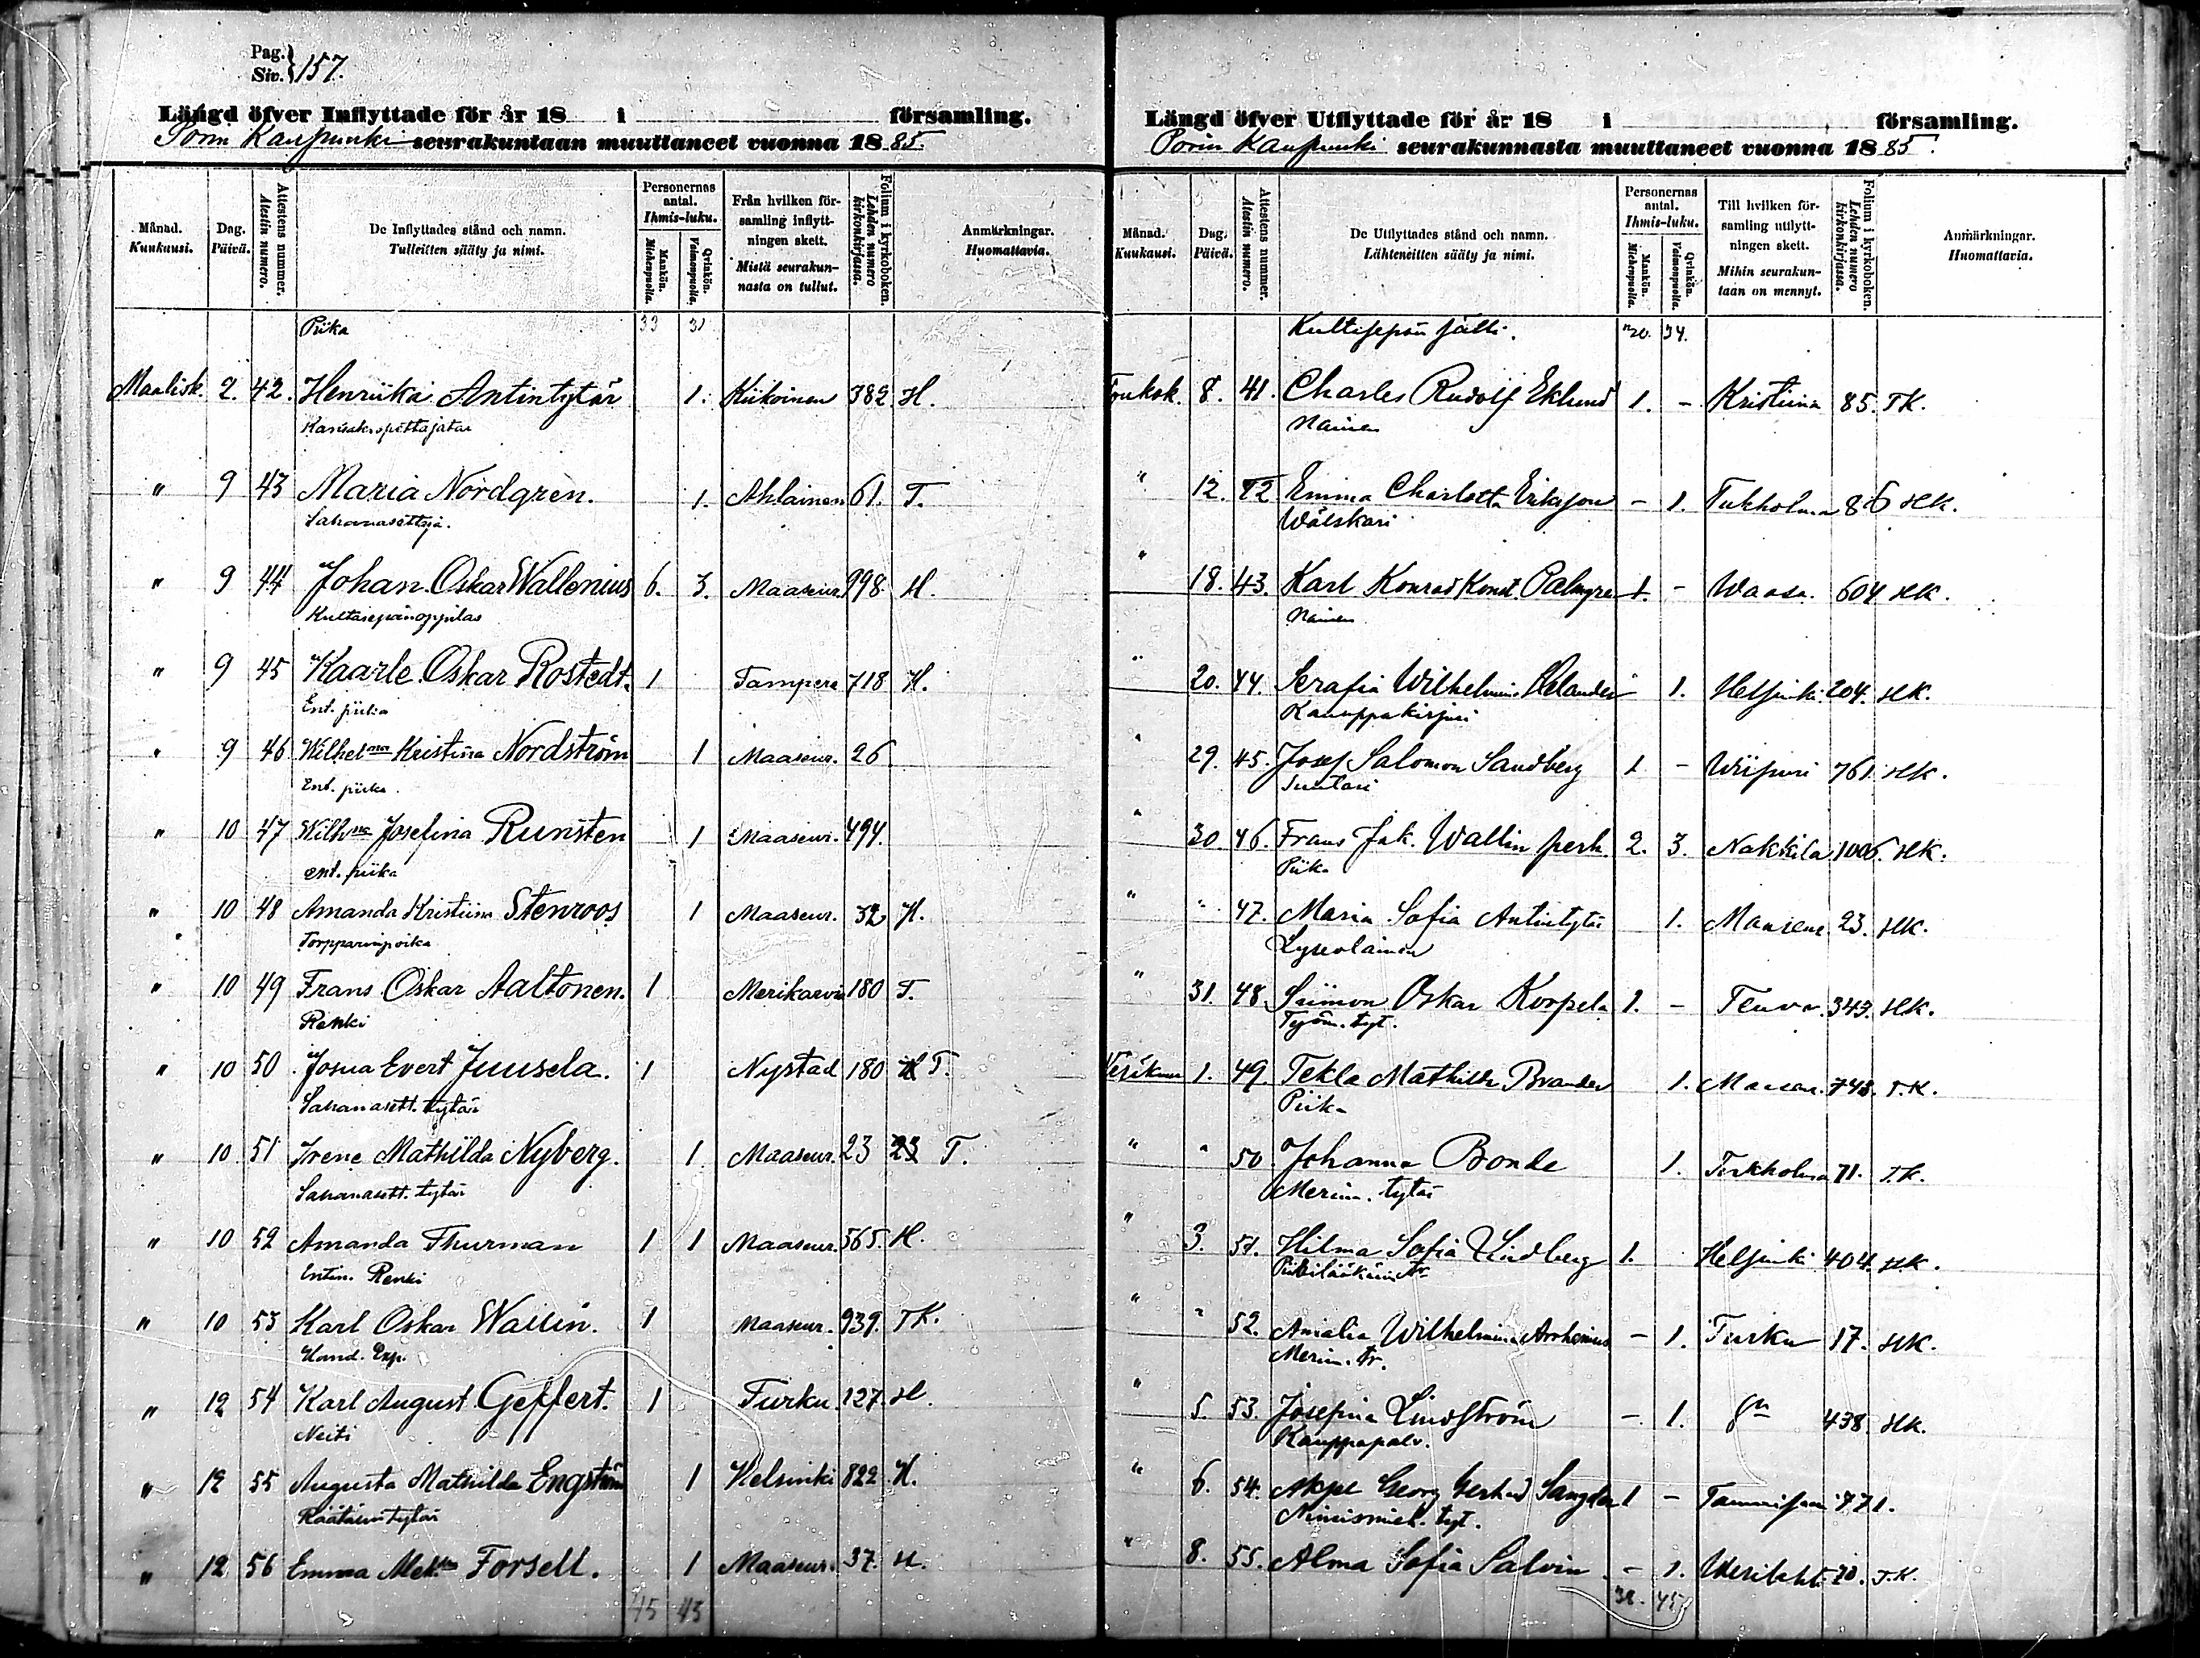 Pag. Siv. } 157.
Längd öfver Inflyttade för år 18 i församling.
Porin Kaupunki seurakuntaan muuttaneet vuonna 1885.
Månad. Kuukausi. Dag. Päivä. Attestens nummer. Atestin numero. De Inflyttades stånd och namn. Tulleitten sääty ja nimi. Personernas antal. Ihmis-luku. Mankön. Miehenpuolia. Qvinkön. Vaimonpuolia. Från hvilken församling inflyttningen skett. Mistä seurakunnasta on tullut. Folium i kyrkoboken. Lehden numero kirkonkirjassa. Anmärkningar. Huomattavia.
Piika 33 31
Maalisk. 2. 42. Henriika Antintytär 1. Kiikoinen 382. H.
9 43 Maria Nordgren. 1. Ahlainen 61. T.
Sahanasettaja.
" 9 44 Johan Oskar Wallenius 6. 3. Maaseur. 998. H.
Kultasepänoppilas
" 9 45 Kaarle Oskar Rostedt. 1 Tampere 718 H.
Ent. piika
" 9 46 Wilhelma Kristina Nordström 1 Maaseur. 26
Ent. piika.
" 10 47 Wilhna Josefina Runsten 1 Maaseur. 494.
ent. piika
" 10 48 Amanda Kristiina Stenroos 1 Maaseur. 32 H.
Torpparinpoika
" 10 49 Frans Oskar Aaltonen. 1 Merikarvia 180 T.
Renki
" 10 50 Josua Evert Juusela. 1 Nystad 180 H T.
Sahanasett. tytär
" 10 51 Irene Mathilda Nyberg. 1 Maaseur. 23 23 T.
Sahanasett. tytär
" 10 52 Amanda Thurman 1 1 Maaseur. 565. H.
Entin. Renki
" 10 53 Karl Oskar Wallin. 1 Maaseur. 939. TK.
Hand. Exp.
" 12 54 Karl August Geffert. 1 Turku 127. H.
Neiti
" 12 55 Augusta Mathilda Engström 1 Helsinki 822 H.
Räätälintytär
" 12 56 Emma Forsell. 1 Maaseur. 37. H.
45 43
Längd öfver Utflyttade för år 18 i församling.
Porin Kaupunki seurakunnasta muuttaneet vuonna 1885.
Månad. Kuukausi. Dag. Päivä. Attestens nummer. Atestin numero. De Utflyttades stånd och namn. Lähteneitten sääty ja nimi. Personernas antal. Ihmis-luku. Mankön. Miehenpuolia. Qvinkön. Vaimonpuolia. Till hvilken församling utflyttningen skett. Mihin seurakuntaan on mennyt. Folium i kyrkoboken. Lehden numero kirkonkirjassa. Anmärkningar. Huomattavia.
Kultasepän 34.
Toukok. 8. 41. Charles Rudolf Eklund 1. - Kristiina 85. TK.
Nainen
" 12. 42 Emma Charlotta Eriksson - 1. Tukholma 86 HK.
Wälskari
" 18. 43. Karl Konrad Konst. Palmgren 1. - Waasa. 604 HK.
Nainen
" 20. 44. Serafia Wilhelmina Helander 1. Helsinki 204. HK.
Kauppakirjuri
" 29. 45. Josef Salomon Sandberg 1 - Wiipuri 761. HK.
Suutari
" 30. 46. Frans Jak. Wallin perh. 2. 3. Nakkila 1006. HK.
Piika
" " 47. Maria Sofia Antintytär 1. Maaseur. 23. HK.
Lyseolainen
" 31. 48. Siimon Oskar Korpela 1. - Teuva. 343. HK.
Työm. tyt.
Kesäkuu 1. 49. Tekla Mathilda Brander 1. Maaseur. 743. T.K.
Piika
" " 50 Johanna Bonde 1. Tukholma 71. T.K.
Merim. tytär
" 3. 51. Hilma Sofia Lindberg 1. Helsinki 404. HK.
Piirilääkärin tr
" " 52. Amalia Wilhelmina Arrhenius - 1. Turku 17. HK.
Merim. tr.
" 5. 53. Josefina Lindström - 1. 438. HK.
Kauppapalv.
" 6. 54. Georg 1 - Tammisaari 771.
tyt.
" 8. 55. Alma Sofia Salvin - 1. Wesilahti 70. T.K.
32. 45